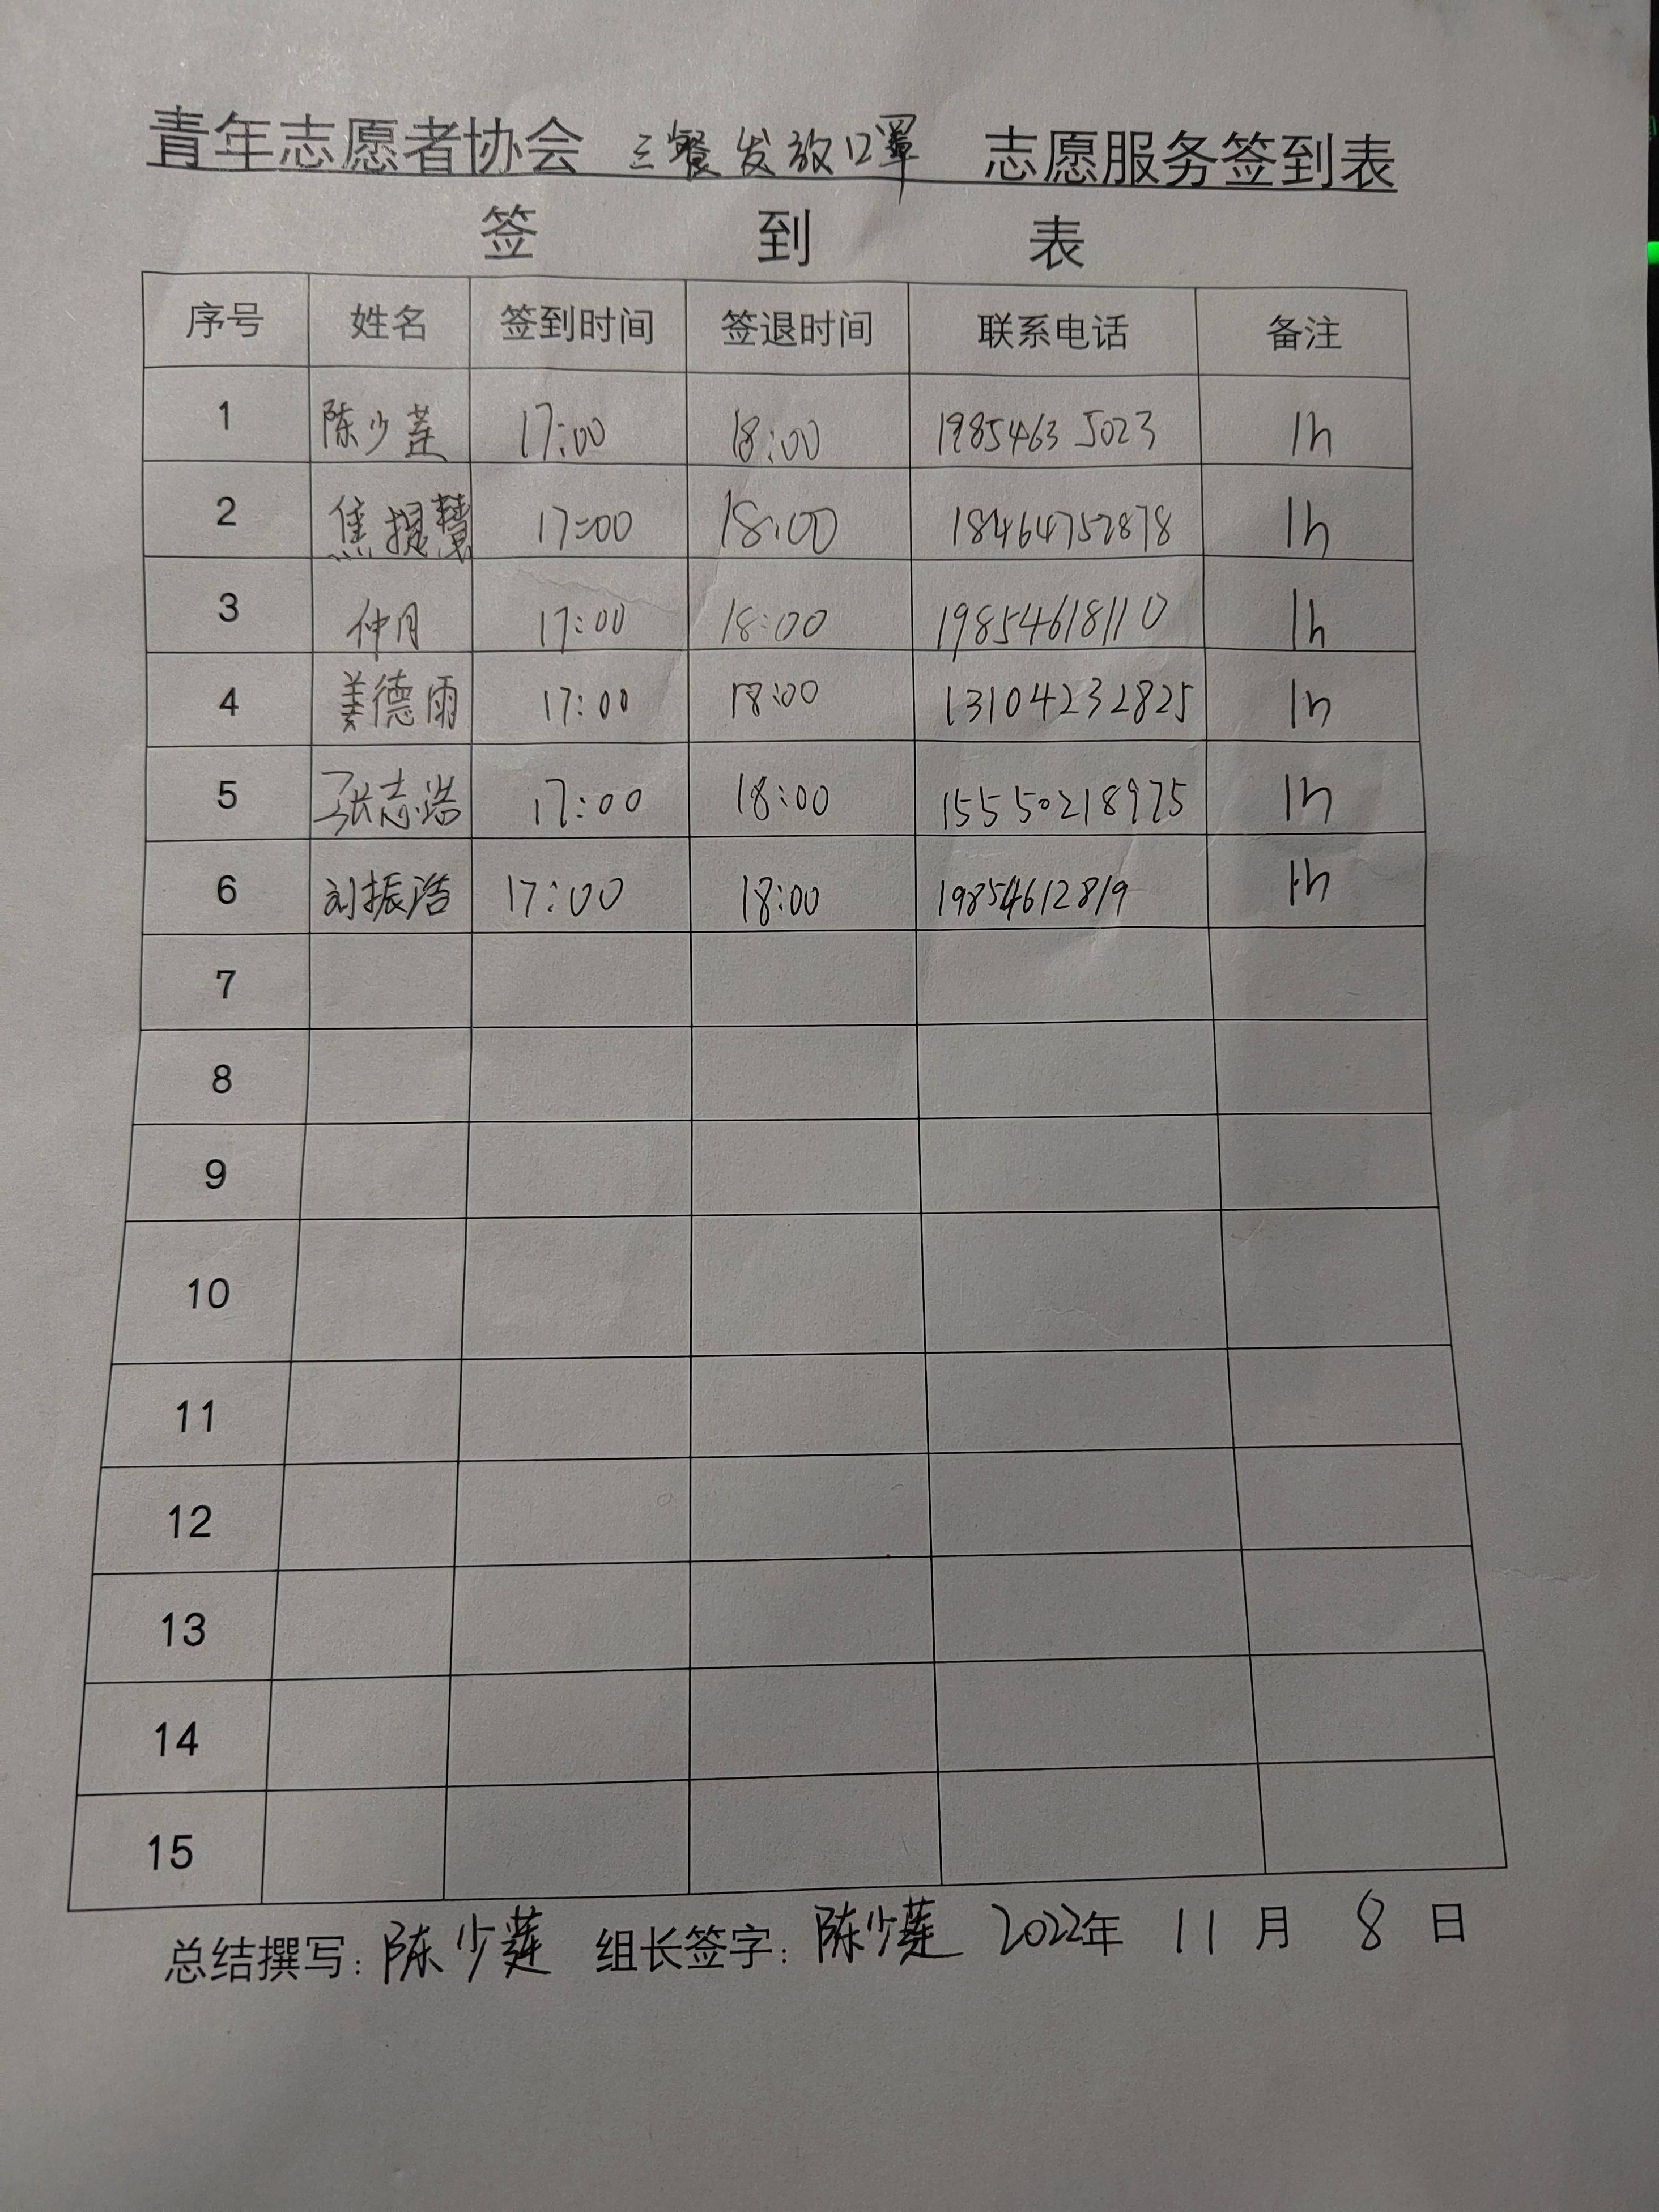 青年志愿者协会 三餐发放口罩 志愿服务签到表
签 到 表
序号 姓名 签到时间 签退时间 联系电话 备注
1 陈少莲 17:00 18:00 19854635023 1h
2 焦提慧 17:00 18:00 18464752878 1h
3 仲月 17:00 18:00 19854618110 1h
4 姜德雨 17:00 18:00 13104232825 1h
5 张志浩 17:00 18:00 15550218975 1h
6 刘振浩 17:00 18:00 19854612819 1h
7
8
9
10
11
12
13
14
15
总结撰写: 陈少莲 组长签字: 陈少莲 2022年 11 月 8 日